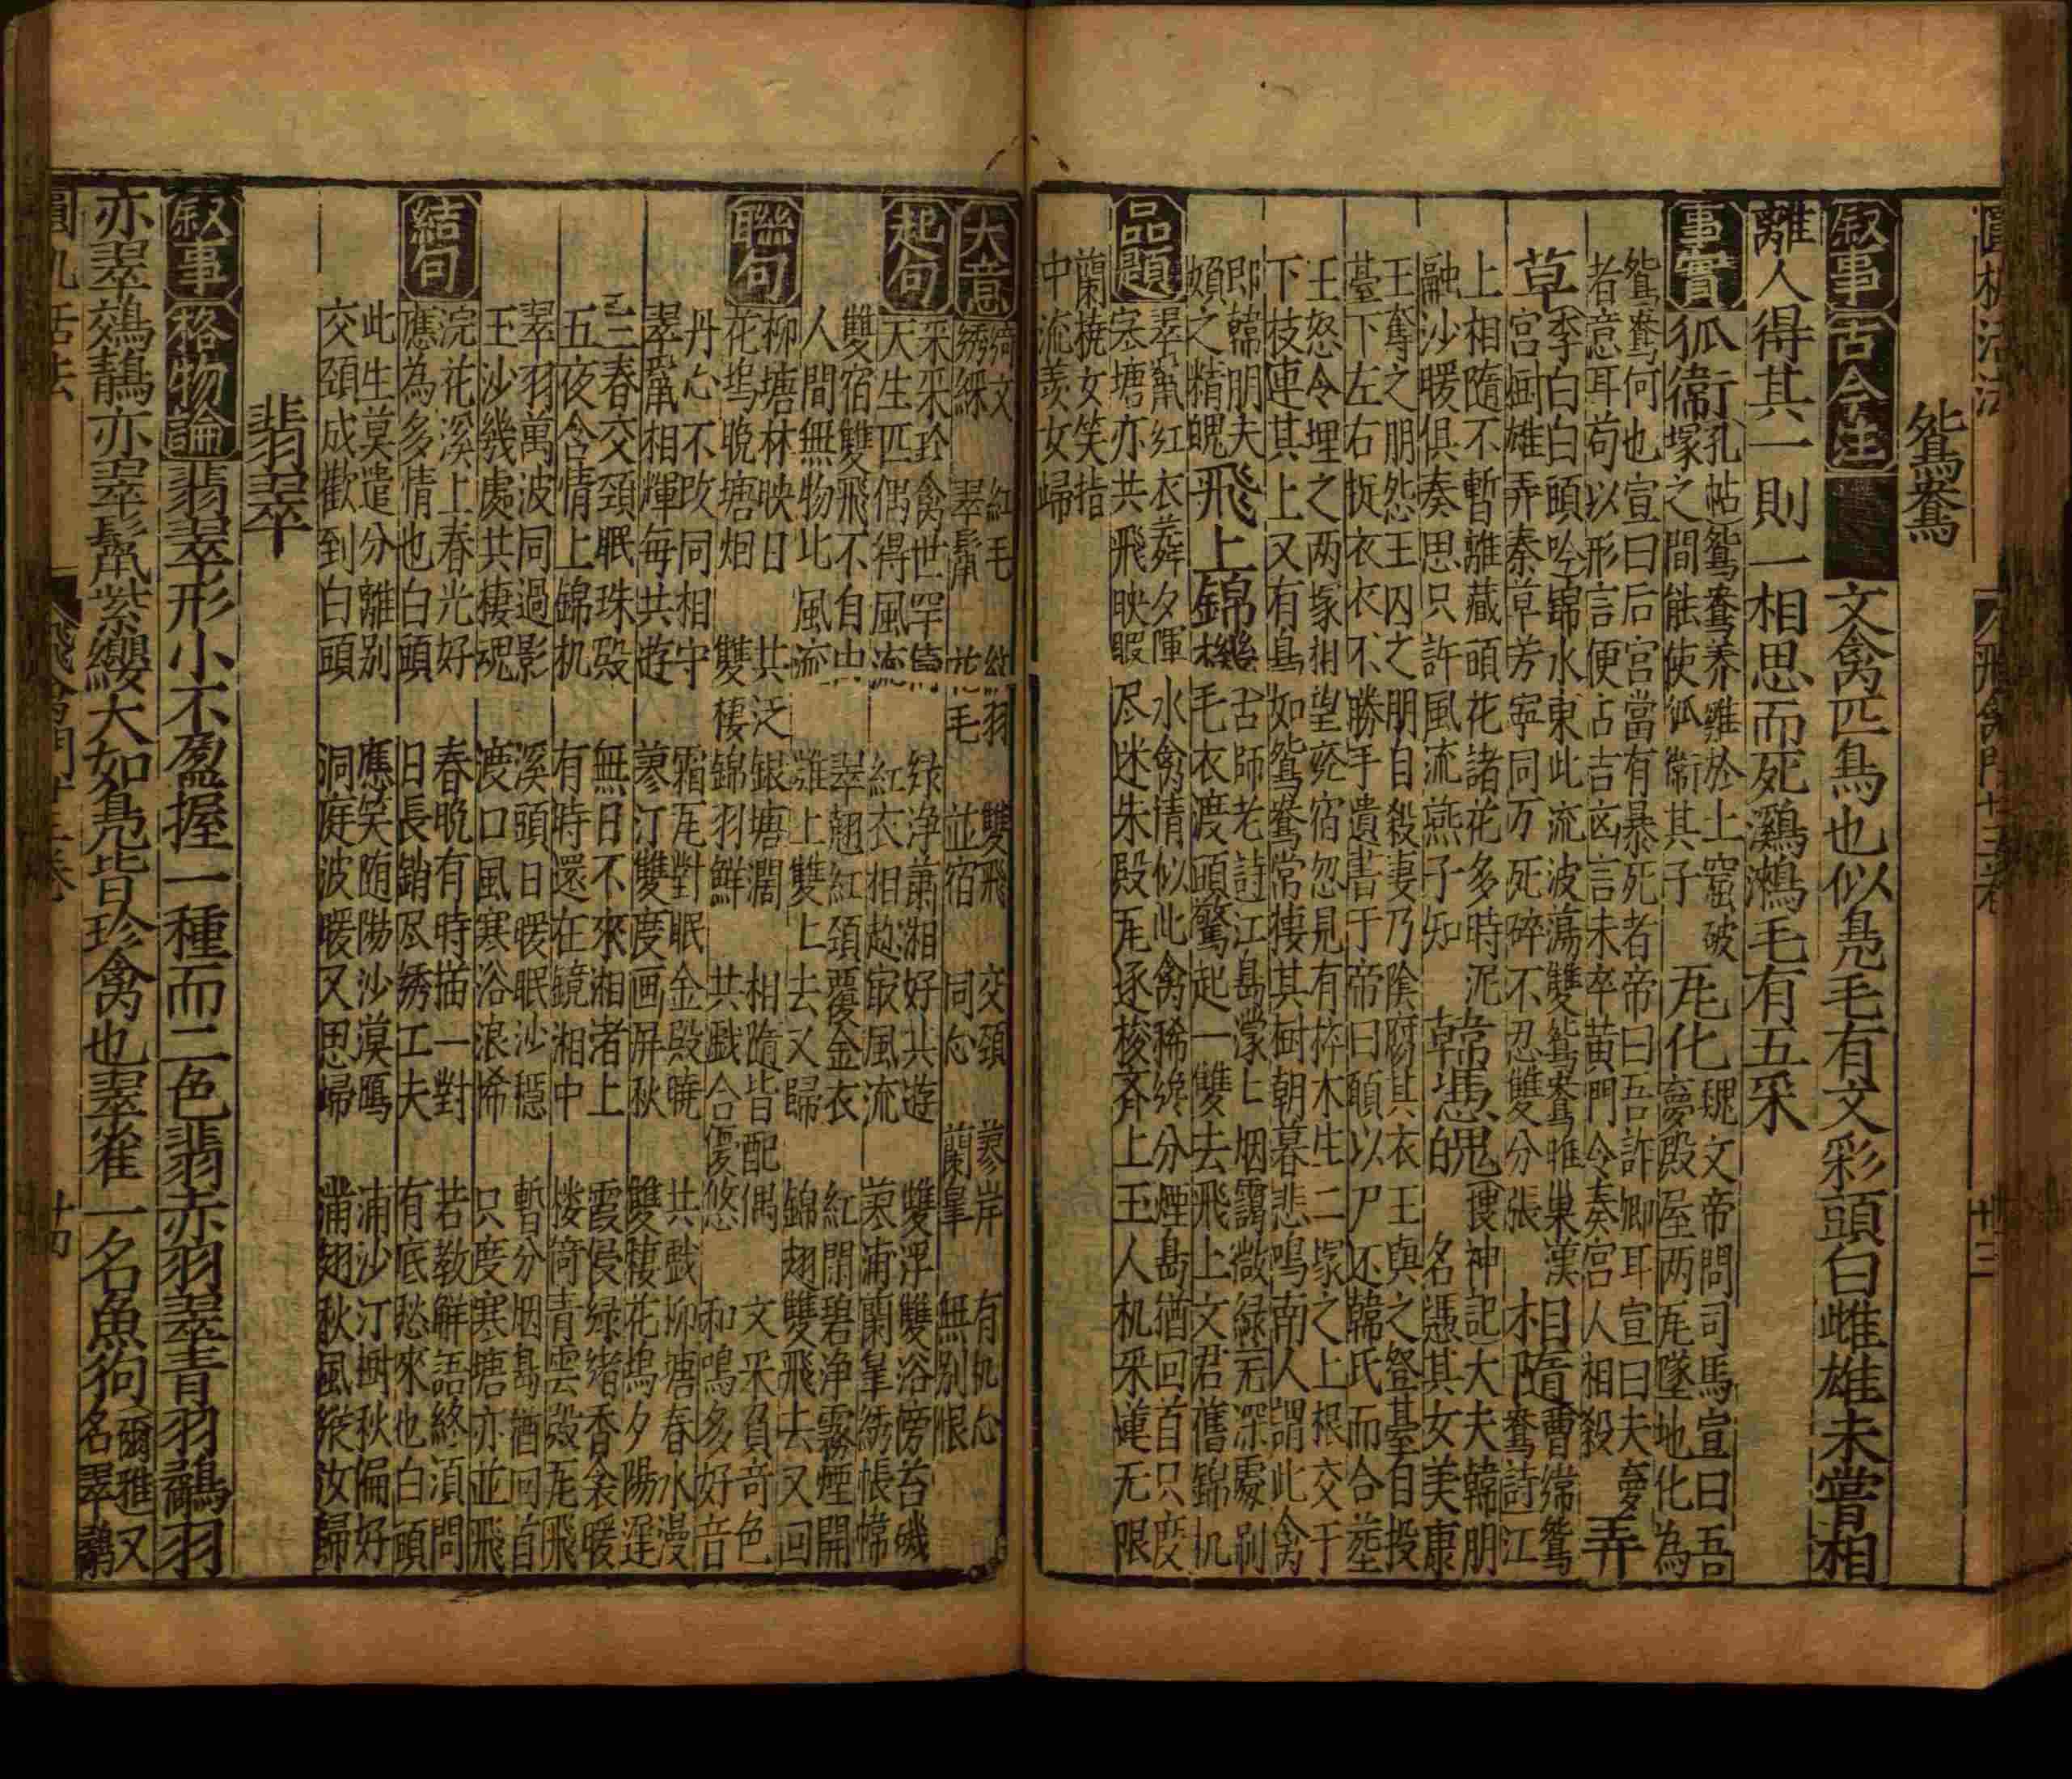 鴛鴦
叙事 古今注 文禽匹鳥也似鳧毛有文彩頭白雌雄未嘗相
離人得其一則一相思而死鸂鶒毛有五采
事實 狐衝 孔帖鴛鴦養雛於土窟破
塚之間能使狐衝其子
瓦化 魏文帝問司馬宣曰吾
夢殿屋两瓦墜地化為
鴛鴦何也宣曰后宮當有暴死者帝曰吾詐卿耳宣曰夫夢
者意耳苟以形言便占吉凶言未卒黄門令奏宮人相殺 弄
草 季白白頭吟錦水東北流波蕩雙鴛鴦雄巢漢
宮樹雌弄秦草芳寧同万死碎不忍雙分張
目隨 曹 鴛
木鴦詩江
上相隨不暫離藏頭花諸花多時泥
融沙暖俱奏思只許風流燕子知
韓憑魂 搜神記大夫韓朋
名憑其女美康
王奪之朋怨王囚之朋自殺妻乃陰腐其衣王與之登臺自投
臺下左右扳衣衣不勝手遺書于帝曰願以尸还韓氏而合塟
王怒令埋之两塚相望宛宿忽見有梓木生二塚之上根交于
下枝連其上又有鳥如鴛鴦常棲其樹朝暮悲鳴南人謂此禽
即韓朋夫
頗之精魄 飛上錦機 古師老詩江島濛上烟靄微綠芜深處刷
毛衣渡頭驚起一雙去飛上文君舊錦机
品題 翠鬣红衣舞夕暉水禽情似此禽稀纔分煙島猶回首只度
寒塘亦共飛映暇尽迷朱殿瓦逐梭齐上玉人机采蓮无限
蘭橈女笑指
中流羨女歸
大意 綺文 紅毛 紅羽 雙飛 交頸 蓼岸 有机心
綉綵 翠鬣 花毛 並宿 同心 蘭皐 無别恨
起句 采采珍禽世罕 绿净萧湘好共遊 雙浮雙浴傍苔磯
天生匹偶得風流 紅衣相趂㝡風流 蓼浦蘭皐綉帳幃
雙宿雙飛不自由 翠翹紅頚覆金衣 紅閒碧净霧煙開
人間無物此風流 灘上雙上去又歸 錦翅雙飛去又回
聯句 柳塘林映日 共泛銀塘濶 相隨皆配偶 文采負奇色
花塢晚塘烟 雙棲錦羽鮮 共戯合優悠 和鳴多好音
丹心不改同相守 霜瓦對眠金殿曉 共戯柳塘春水漫
翠鬣相輝每共遊 蓼汀雙度画屏秋 雙棲花塢夕陽遅
三春交頚眠珠殿 無日不來湘渚上 霞侵绿渚香衾暖
五夜含情上錦机 有時還在鏡湘中 楼倚青雲殿瓦飛
翠羽萬波同過影 溪頭日暖眠沙穏 暫分烟島猶回首
玉沙幾處共棲魂 渡口風寒浴浪悕 只度寒塘亦並飛
結句 浣花溪上春光好 春晩有時描一對 若教解語終湏問
應為多情也白頭 日長銷尽綉工夫 有底愁來也白頭
此生莫遣分離别 應笑随陽沙漠鴈 浦沙汀樹秋偏好
交頚成歡到白頭 洞庭波暖又思㱕 蒲翅秋風从汝歸
翡翠
叙事 格物論 翡翠形小不盈握一種而二色翡赤羽翠青羽鷸羽
亦翠鵁鶄亦翠鬣紫纓大如鳧皆珍禽也翠雀一名魚狗 爾雅又
名翠鷸